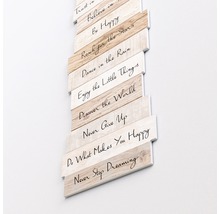 Believe in
Be Happy
Reach for the Stars
Dance in the Rain
Enjoy the Little Things
Discover the World
Never Give Up
Do What Makes You Happy
Never Stop Dreaming